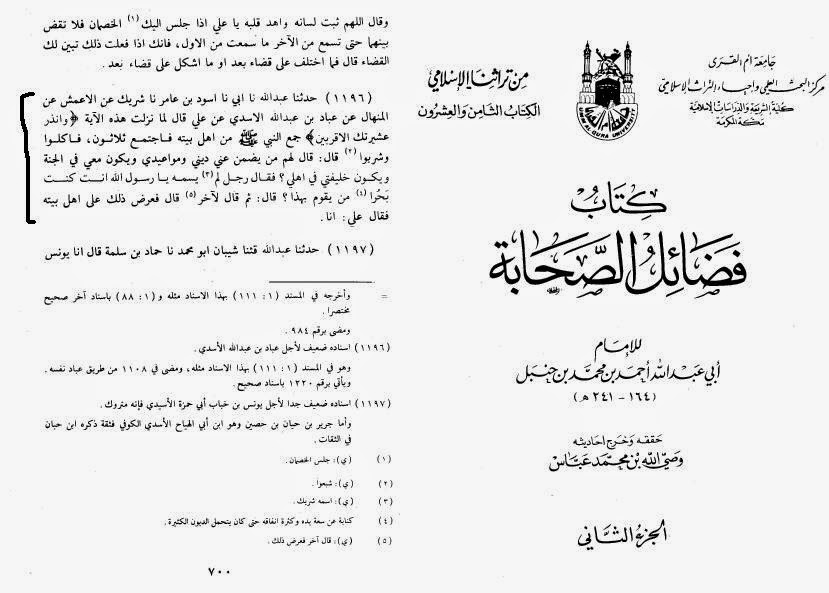 جامعة أم القرى
مركز البحث العلمي وإحياء التراث الإسلامي
كلية الشريعة والدراسات الإسلامية
مكة المكرمة
UMM AL QURA UNIVERSITY
من تراثنا الإسلامي
الكتاب الثامن والعشرون
كتاب
فضائل الصحابة
للإمام
أبي عبد الله أحمد بن محمد بن حنبل
(١٦٤ - ٢٤١ هـ)
حققه وخرج احاديثه
وصي الله بن محمد عباس
الجزء الثاني
وقال اللهم ثبت لسانه واهد قلبه يا علي اذا جلس اليك (١) الخصمان فلا تقض
بينهما حتى تسمع من الآخر ما سمعت من الاول، فانك اذا فعلت ذلك تبين لك
القضاء قال فما اختلف علي قضاء بعد او ما اشكل علي قضاء بعد.
(١١٩٦) حدثنا عبدالله نا ابي نا اسود بن عامر نا شريك عن الاعمش عن
المنهال عن عباد بن عبدالله الاسدي عن علي قال لما نزلت هذه الآية ﴿وانذر
عشيرتك الاقربين﴾ جمع النبي ﷺ من اهل بيته فاجتمع ثلاثون، فاكلوا
وشربوا (٢) قال: قال لهم من يضمن عني ديني ومواعيدي ويكون معي في الجنة
ويكون خليفتي في اهلي؟ فقال رجل لم (٣) يسمه يا رسول الله انت كنت
بَحْرا (٤) من يقوم بهذا؟ قال: ثم قال لآخر (٥) قال فعرض ذلك على اهل بيته
فقال علي: انا.
(١١٩٧) حدثنا عبدالله قثنا شيبان ابو محمد نا حماد بن سلمة قال انا يونس
= وأخرجه في المسند (١: ١١١) بهذا الاسناد مثله و(١: ٨٨) باسناد آخر صحيح
مختصرا.
ومضى برقم ٩٨٤.
(١١٩٦) اسناده ضعيف لأجل عباد بن عبدالله الأسدي.
وهو في المسند (١: ١١١) بهذا الاسناد مثله، ومضى في ١١٠٨ من طريق عباد نفسه.
ويأتي برقم ١٢٢٠ باسناد صحيح.
(١١٩٧) اسناده ضعيف جدا لأجل يونس بن خباب أبي حمزة الأسيدي فإنه متروك.
وأما جرير بن حيان بن حصين وهو ابن أبي الهياج الأسدي الكوفي فثقة ذكره ابن حبان
في الثقات.
(١) (ي): جلس الخصمان.
(٢) (ي): شبعوا.
(٣) (ي): اسمه شريك.
(٤) كناية عن سعة يده وكثرة انفاقه حتى كان يتحمل الديون الكثيرة.
(٥) (ي): قال آخر فعرض ذلك.
٧٠٠